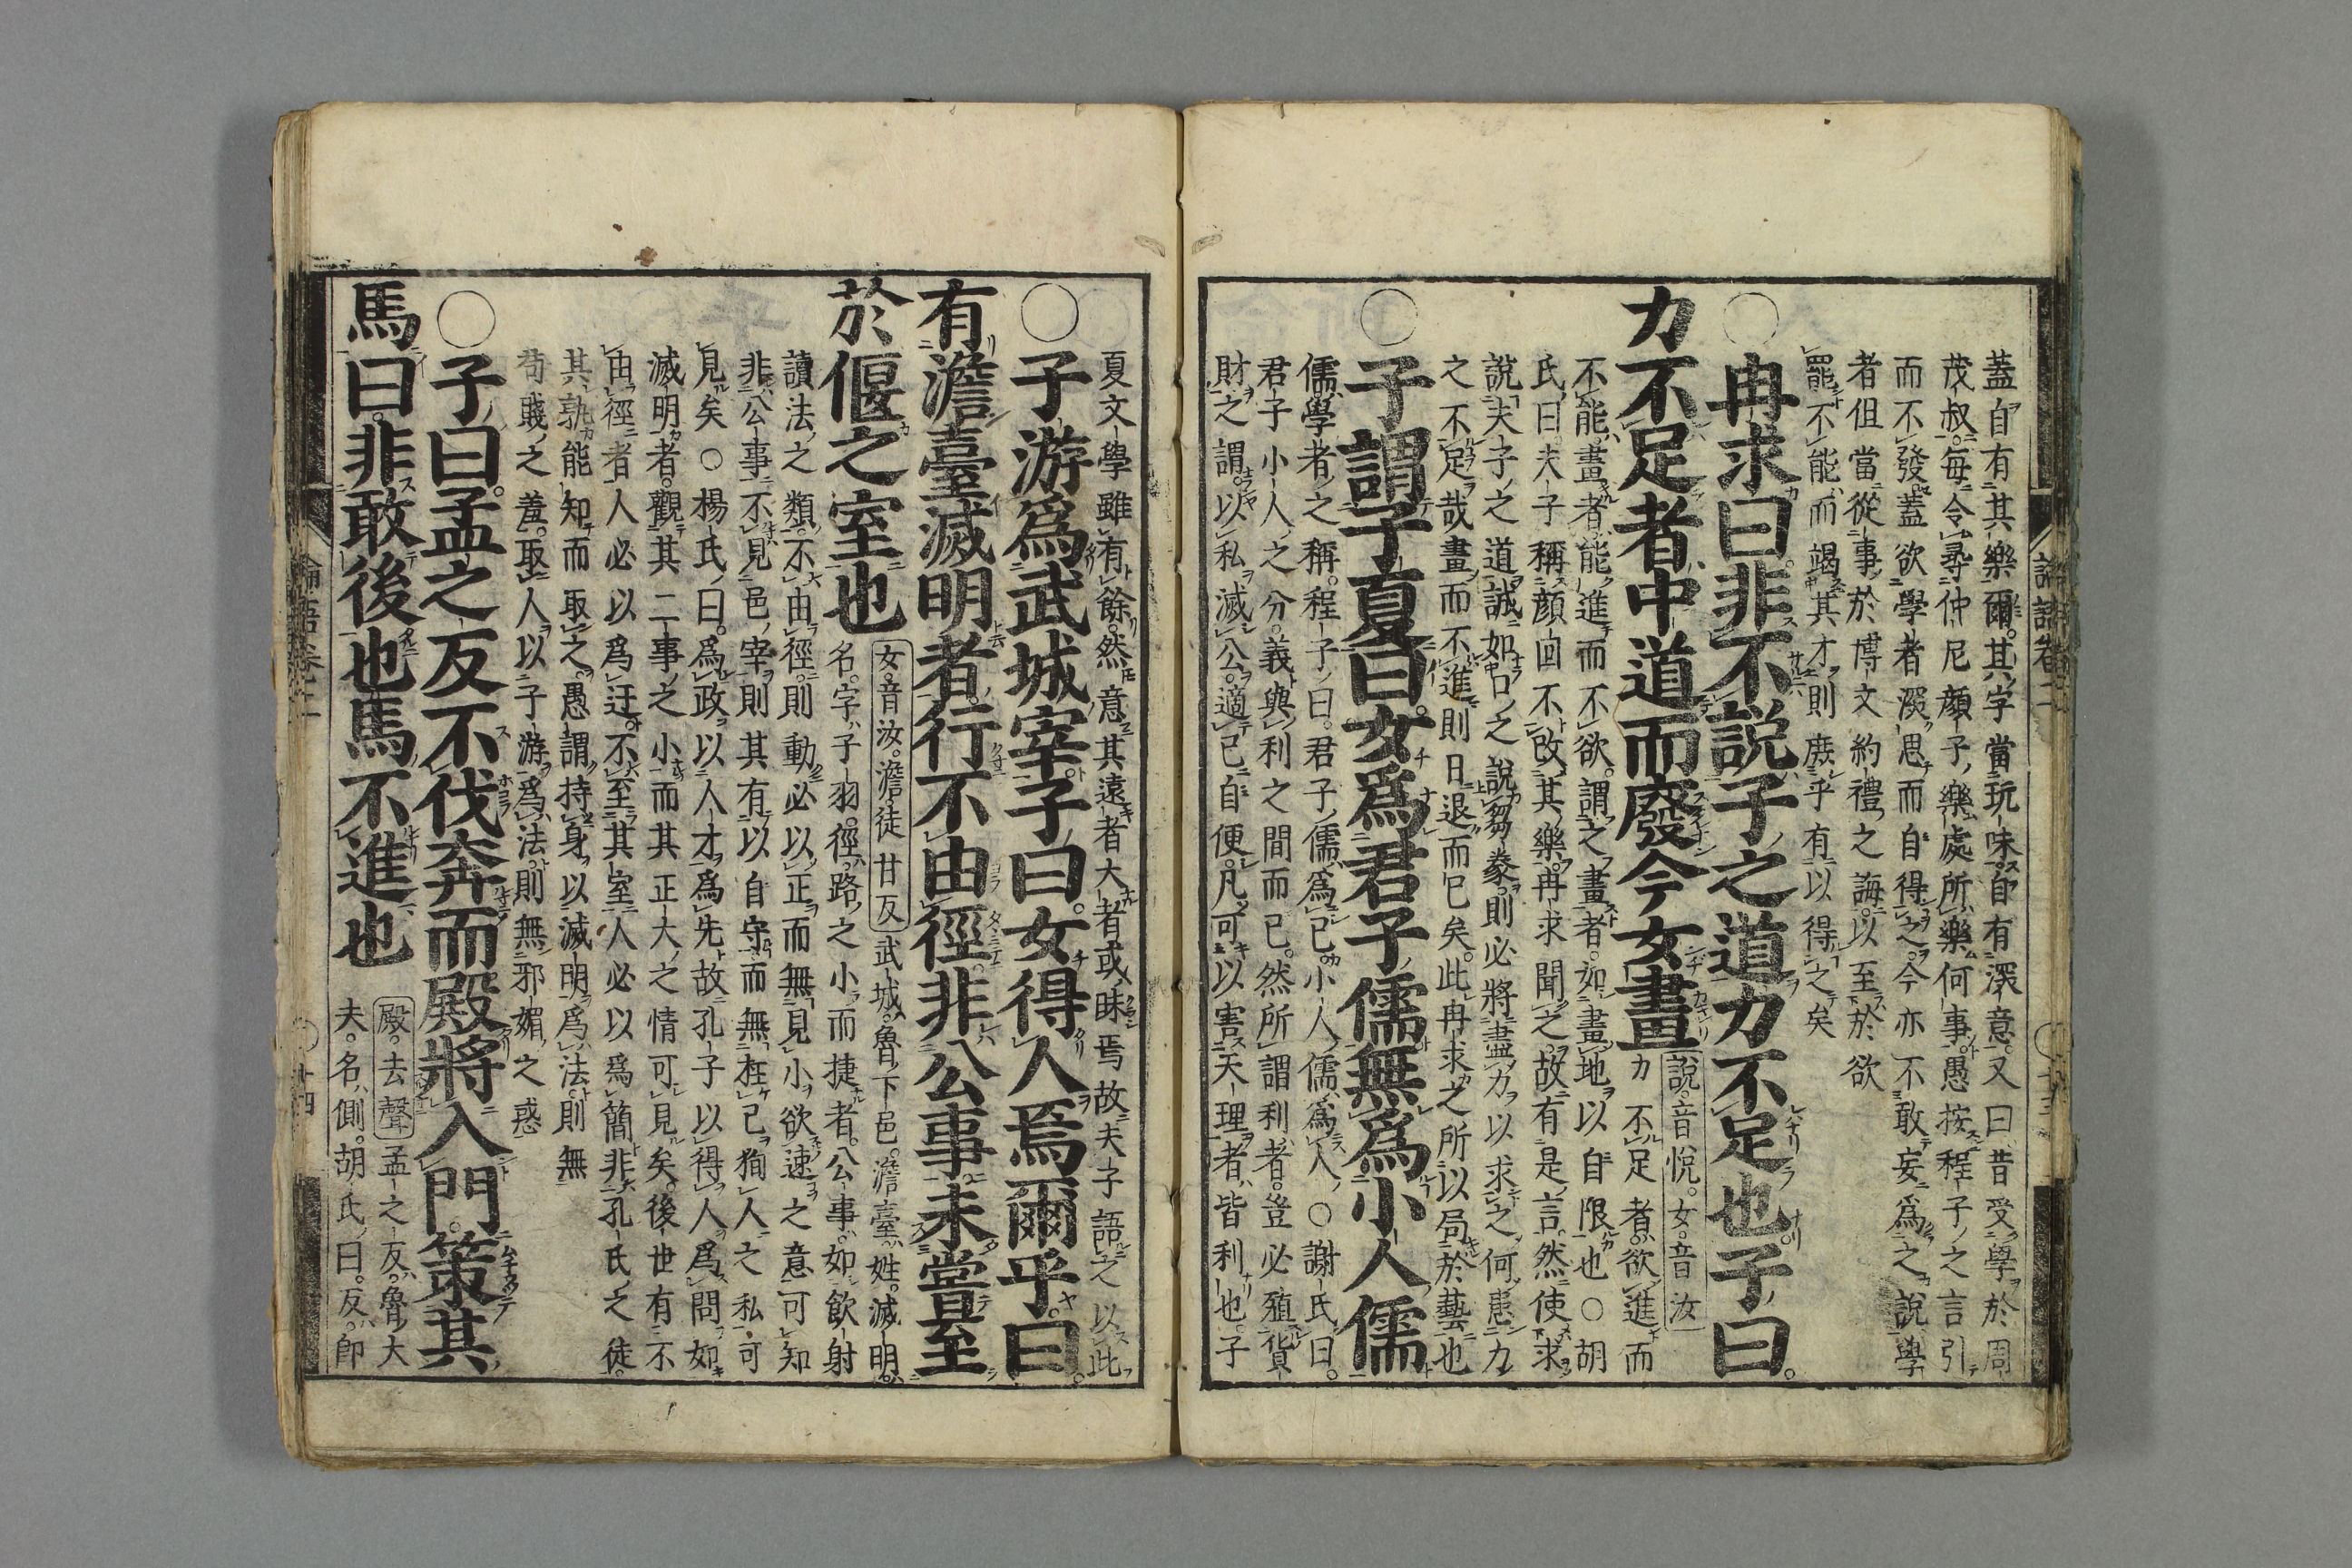 蓋自有其樂爾其字當玩味自有深意又曰昔受學於周
茂叔每令尋仲尼顏子樂處所樂何事愚按程子之言引
而不發蓋欲學者深思而自得之今亦不敢妄爲之說學
者但當從事於博文約禮之誨以至於欲
罷不能而竭其才則庶乎有以得之矣
○冉求曰非不說子之道力不足也子曰
力不足者中道而廢今女畫
說音悅。女音汝
力不足者欲進而
不能畫者能進而不欲謂之畫者如畫地以自限也○胡
氏曰夫子稱顏回不改其樂冉求聞之故有是言然使求
說夫子之道誠如口之說芻豢則必將盡力以求之何患力
之不足哉畫而不進則日退而已矣此冉求之所以局於藝也
○子謂子夏曰女爲君子儒無爲小人儒
儒學者之稱程子曰君子儒爲己小人儒爲人○謝氏曰
君子小人之分義與利之間而已然所謂利者豈必殖貨
財之謂以私滅公適己自便凡可以害天理者皆利也子
論語卷二
十三
夏文學雖有餘然意其遠者大者或昧焉故夫子語之以此
○子游爲武城宰子曰女得人焉爾乎曰
有澹臺滅明者行不由徑非公事未嘗至
於偃之室也
女音汝。澹徒甘反
武城魯下邑澹臺姓滅明
名字子羽徑路之小而捷者公事如飲射
讀法之類不由徑則動必以正而無見小欲速之意可知
非公事不見邑宰則其有以自守而無枉己徇人之私可
見矣○楊氏曰爲政以人才爲先故孔子以得人爲問如
滅明者觀其二事之小而其正大之情可見矣後世有不
由徑者人必以爲迂不至其室人必以爲簡非孔氏之徒
其孰能知而取之愚謂持身以滅明爲法則無
苟賤之羞取人以子游爲法則無邪媚之惑
○子曰孟之反不伐奔而殿將入門策其
馬曰非敢後也馬不進也
殿去聲
孟之反魯大
夫名側胡氏曰反即
論語卷二
十四